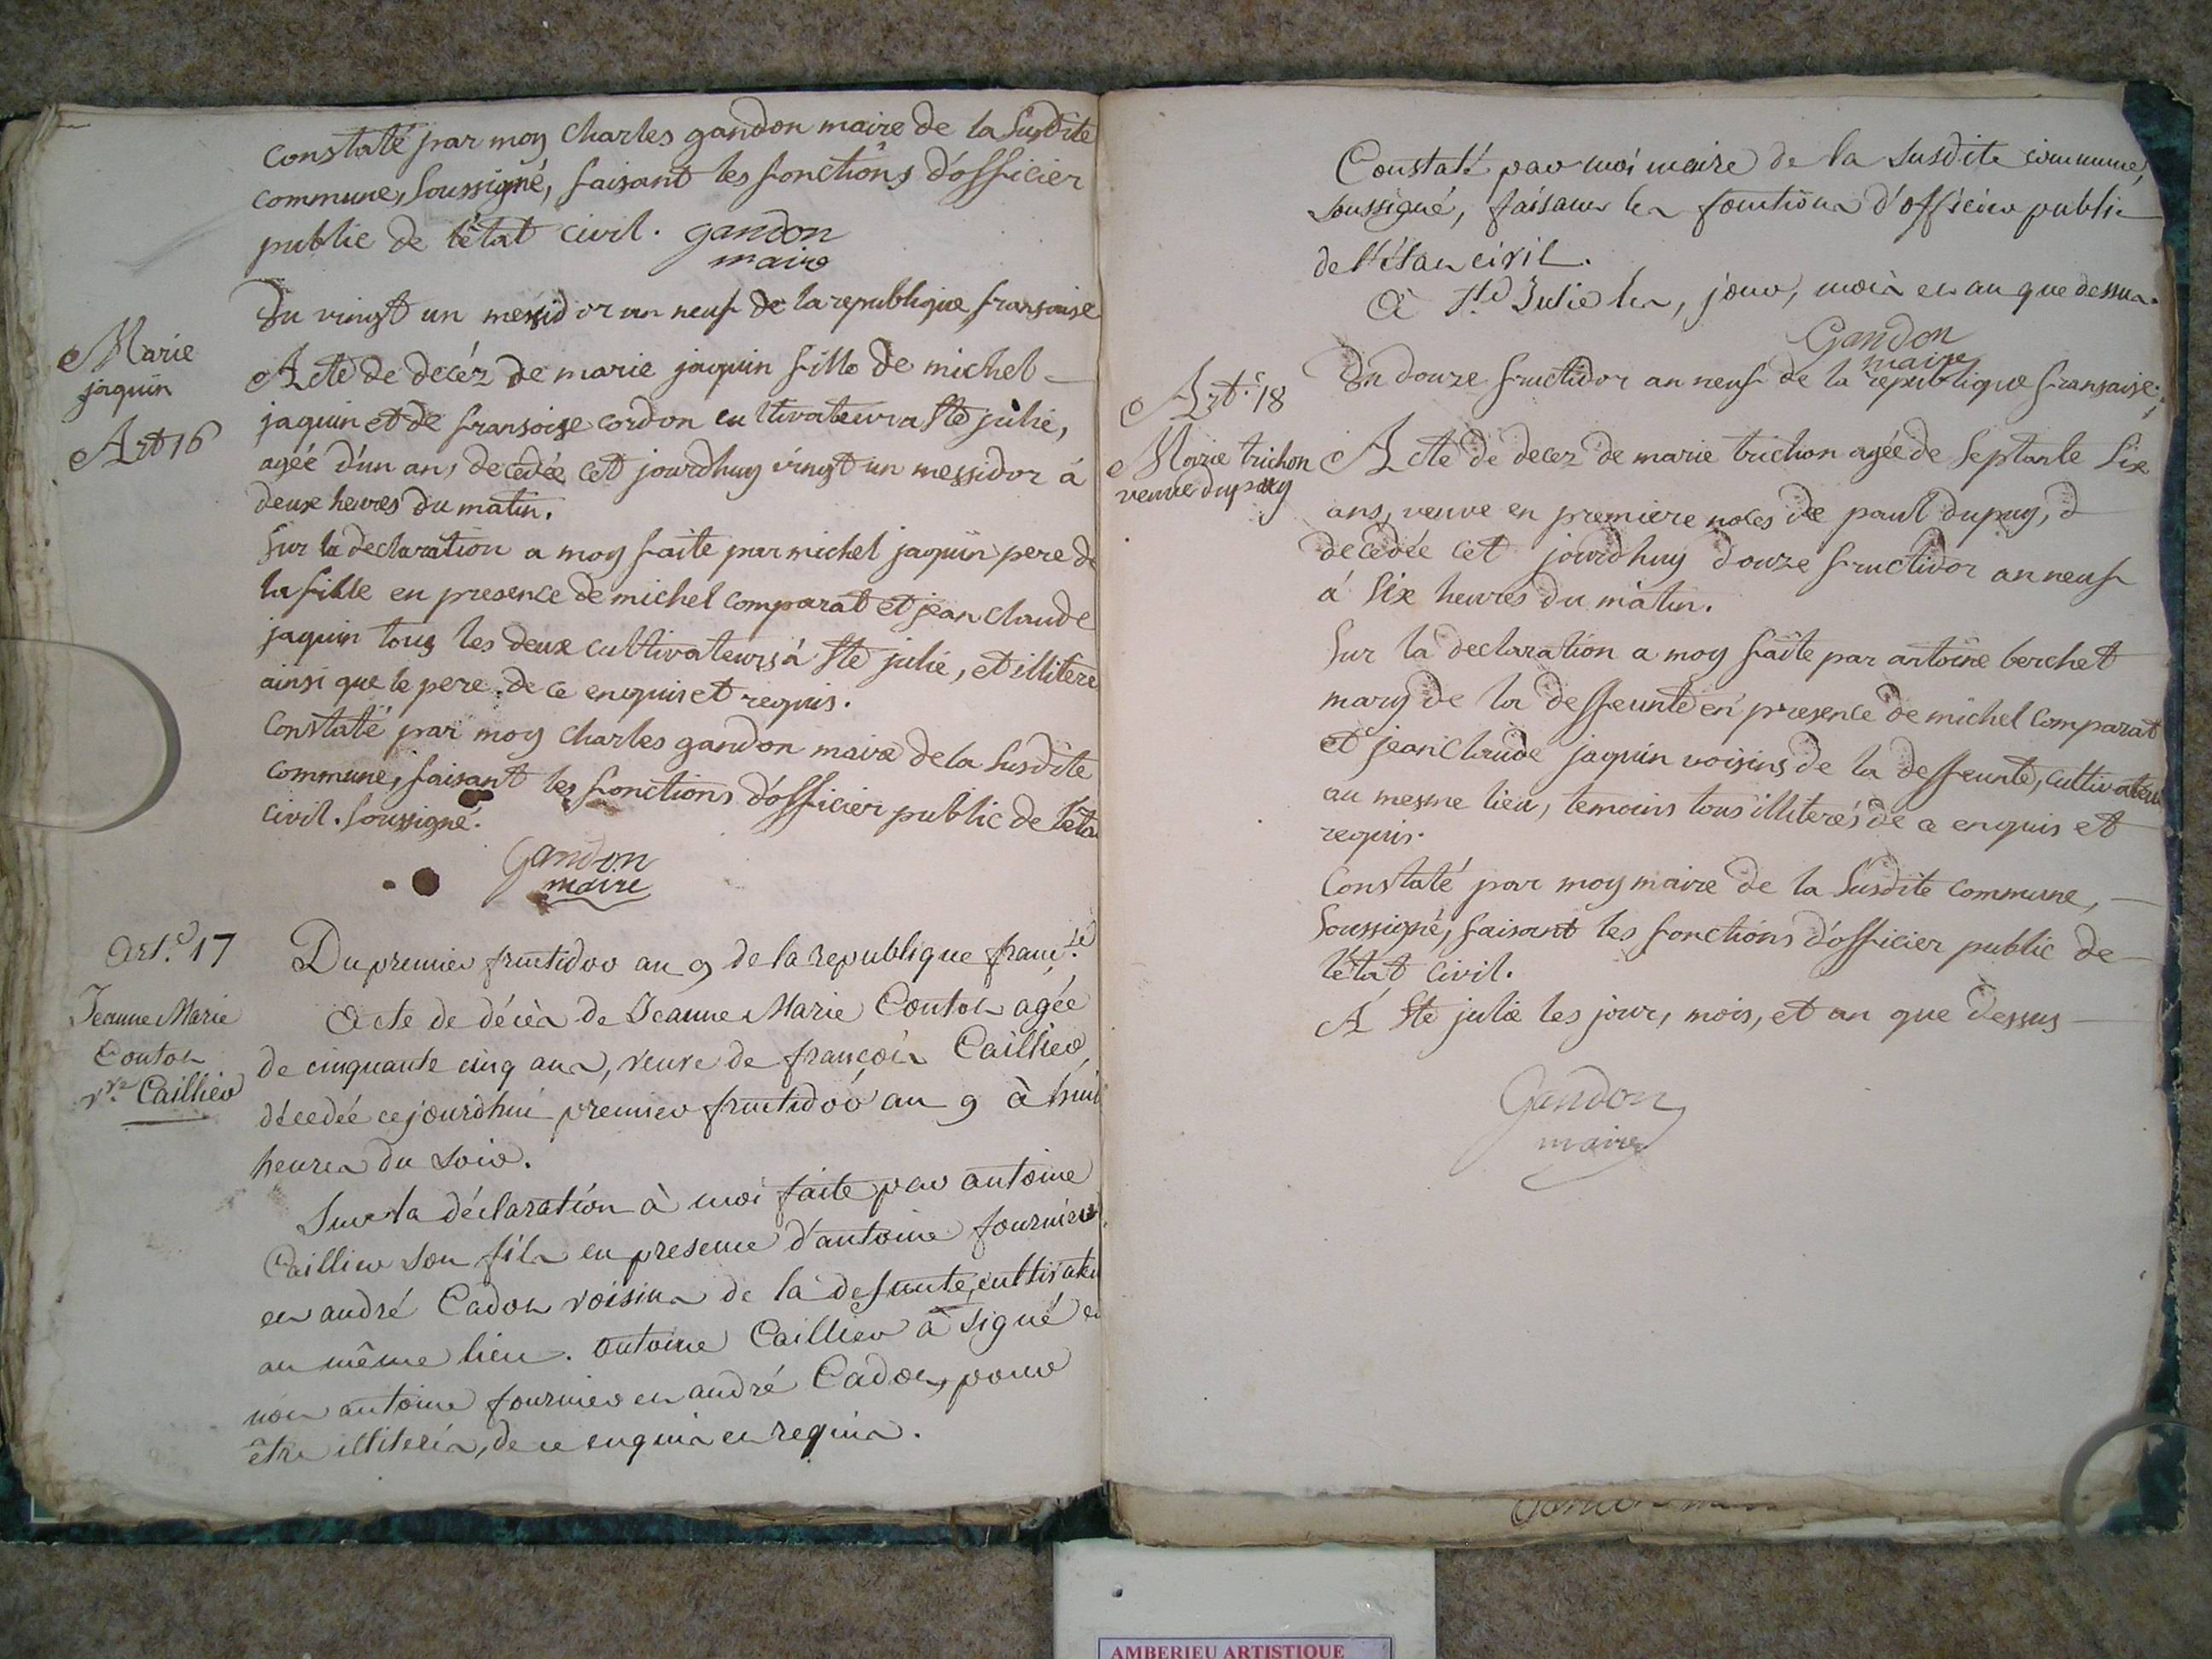 Constaté par moy Charles gandon maire de la Susdite
commune, Soussigné, faisant les fonctions d'officier
public de l'état civil. gandon
maire
Du vingt un messidor an neuf de la republique fransaise
Marie
jaquin
Art 16
Acte de decéz de marie jaquin fille de michel
jaquin et de fransoise cordon cultivateur a Ste julie,
agéé d'un an, decedée cet jourdhuy vingt un messidor à
deux heures du matin.
Sur la declaration a moy faite par michel jaquin pere de
la fille en presence de michel comparat et jean claude
jaquin tous les deux cultivateurs à Ste julie, et illiteré
ainsi que le pere de ce enquis et requis.
Constaté par moy Charles gandon maire de la Susdite
commune, faisant les fonctions d'officier public de l'éta
civil. Soussigné.
Gandon
maire
Art.e 17
Du premier fructidor an 9 de la republique franç.se
Jeanne Marie
Contot
v.ve Caillier
Acte de décès de Jeanne Marie Contot agée
de cinquante cinq ans, veuve de françois Caillier,
décedée cejourdhui premier fructidor an 9 à huit
heures du soir.
Sur la déclaration à moi faite par antoine
Caillier son fils en presence d'antoine fournier
et andré Cadot voisins de la defunte, cultivateu
au même lieu. antoine Caillier à signé et
non antoine fournier et andré Cadot, pour
être illiterés, de ce enquis et requis.
Constaté par moi maire de la susdite commune,
soussigné, faisant les fonctions d'officier public
de l'état civil.
A Ste Julie les, jour, mois et an que dessus.
Gandon
maire
Du douze fructidor an neuf de la republique fransaise.
Art.e 18
Marie trichon
veuve dupuy
Acte de decez de marie trichon agée de septante Six
ans, veuve en premiere noces de paul dupuy, d
decedée cet jourdhuy douze fructidor an neuf
à Six heures du matin.
Sur la declaration a moy faite par antoine berchet
mary de la deffeunte en presence de michel comparat
et jean Claude jaquin voisins de la deffeunte, cultivateu
au mesme lieu, temoins tous illiterés de ce enquis et
requis.
Constaté par moy maire de la Susdite commune,
Soussigné, faisant les fonctions d'officier public de
l'état civil.
A Ste julie les jour, mois, et an que dessus
Gandon
maire
AMBERIEU ARTISTIQUE